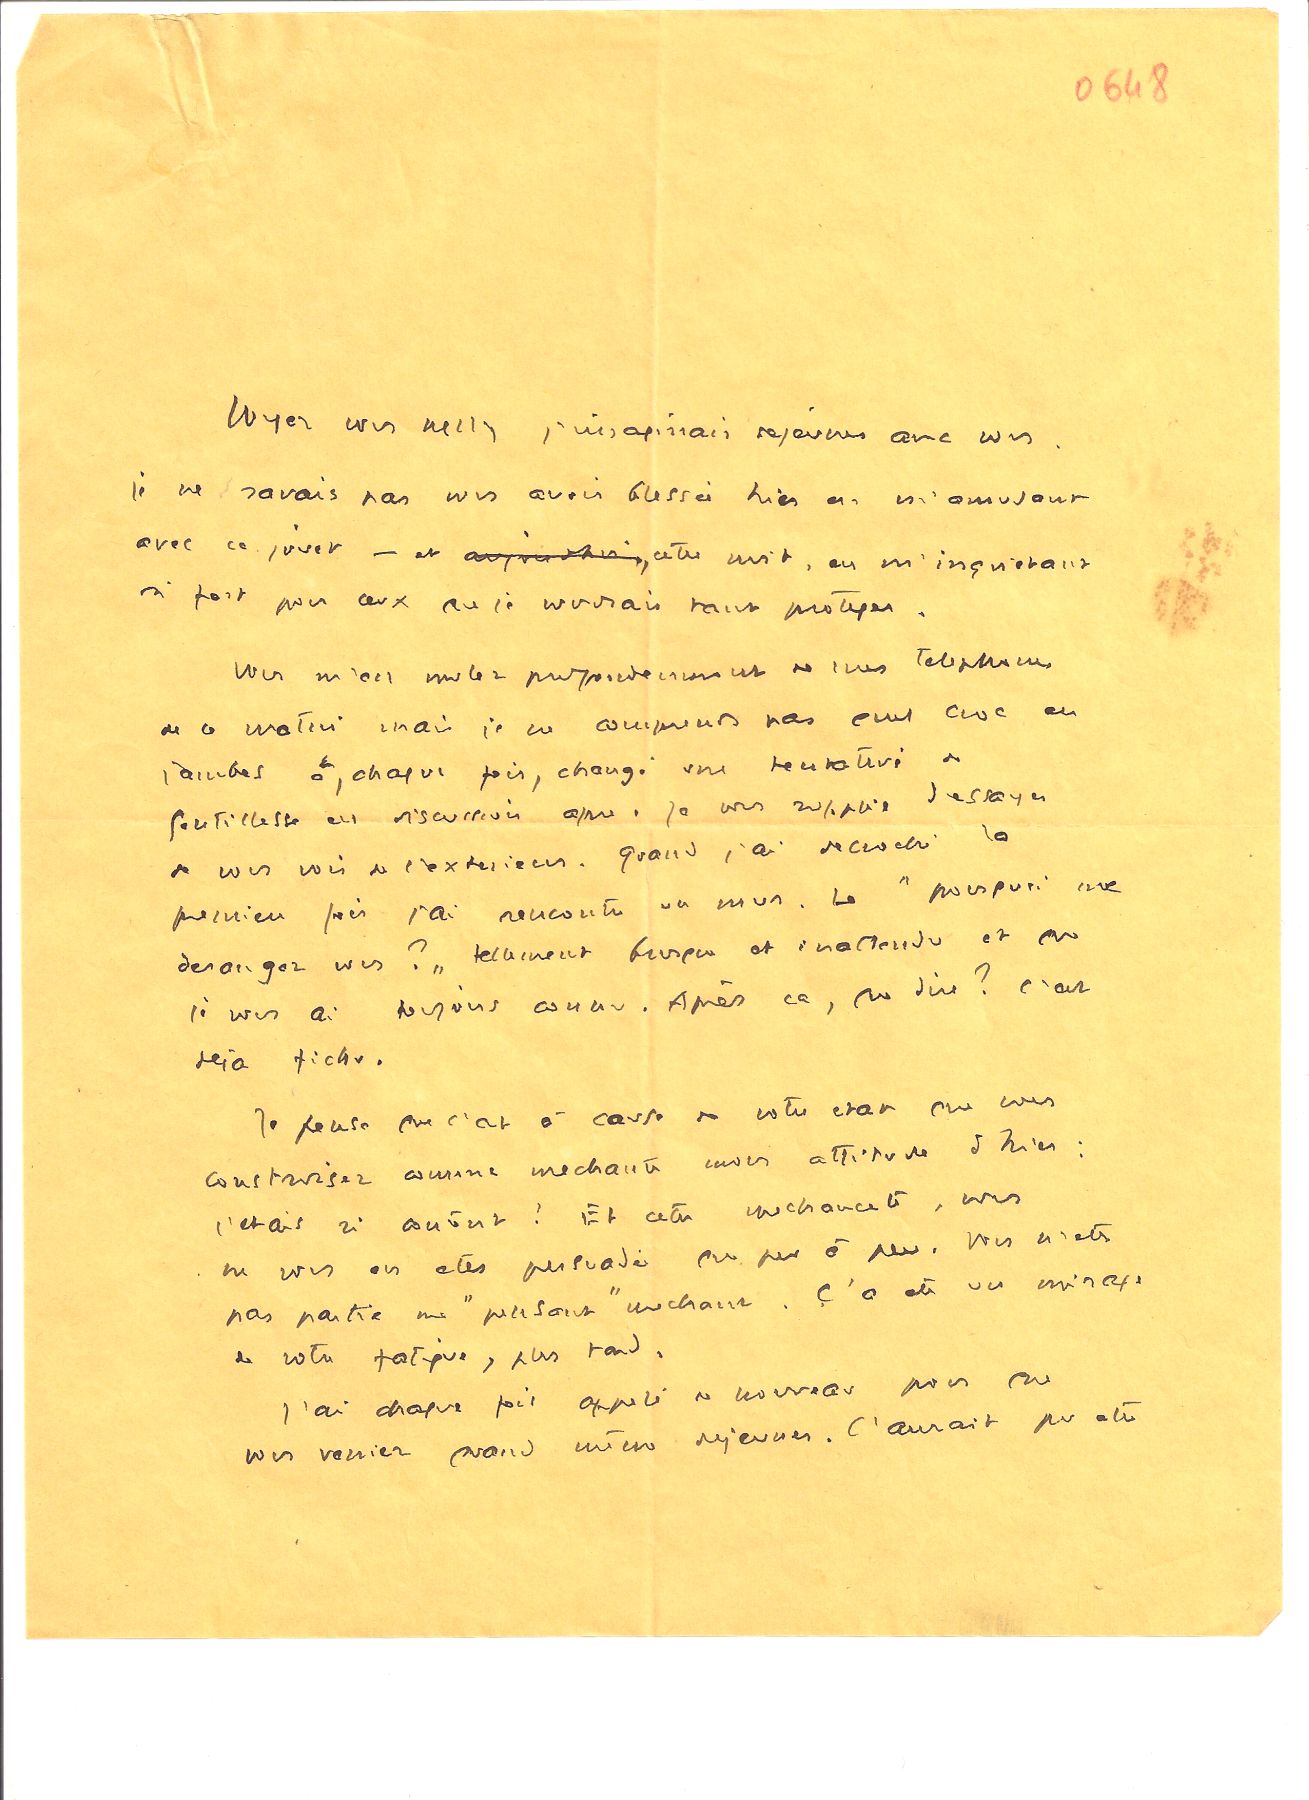 0648
Voyez vous Nelly j'imaginais déjeuner avec vous.
je ne savais pas vous avoir blessée hier en m'amusant
avec ce jouet — et aujourd'hui, cette nuit, en m'inquietant
si fort pour ceux que je voudrais tant protéger.
Vous m'en voulez profondement de mes telephones
de ce matin mais je ne comprends pas quel croc en
jambes a, chaque fois, changé une tentative de
gentillesse en discussion apre. Je vous supplie d'essayer
de vous voir de l'exterieur. Quand j'ai decroché la
premiere fois j'ai rencontré un mur. Le "pourquoi me
derangez vous ?" tellement brusque et inattendu et que
je vous ai toujours connu. Après ca, que dire ? c'est
deja fichu.
Je pense que c'est à cause de votre etat que vous
construisez comme mechante mon attitude d'hier :
j'etais si content ! Et cette mechanceté, vous
ne vous en etes persuadée que peu à peu. Vous n'etes
pas partie me "pensant" mechant. Ç'a eté un mirage
de votre fatigue, plus tard.
J'ai chaque fois appelé de nouveau pour que
vous veniez quand même dejeuner. C'aurait pu etre